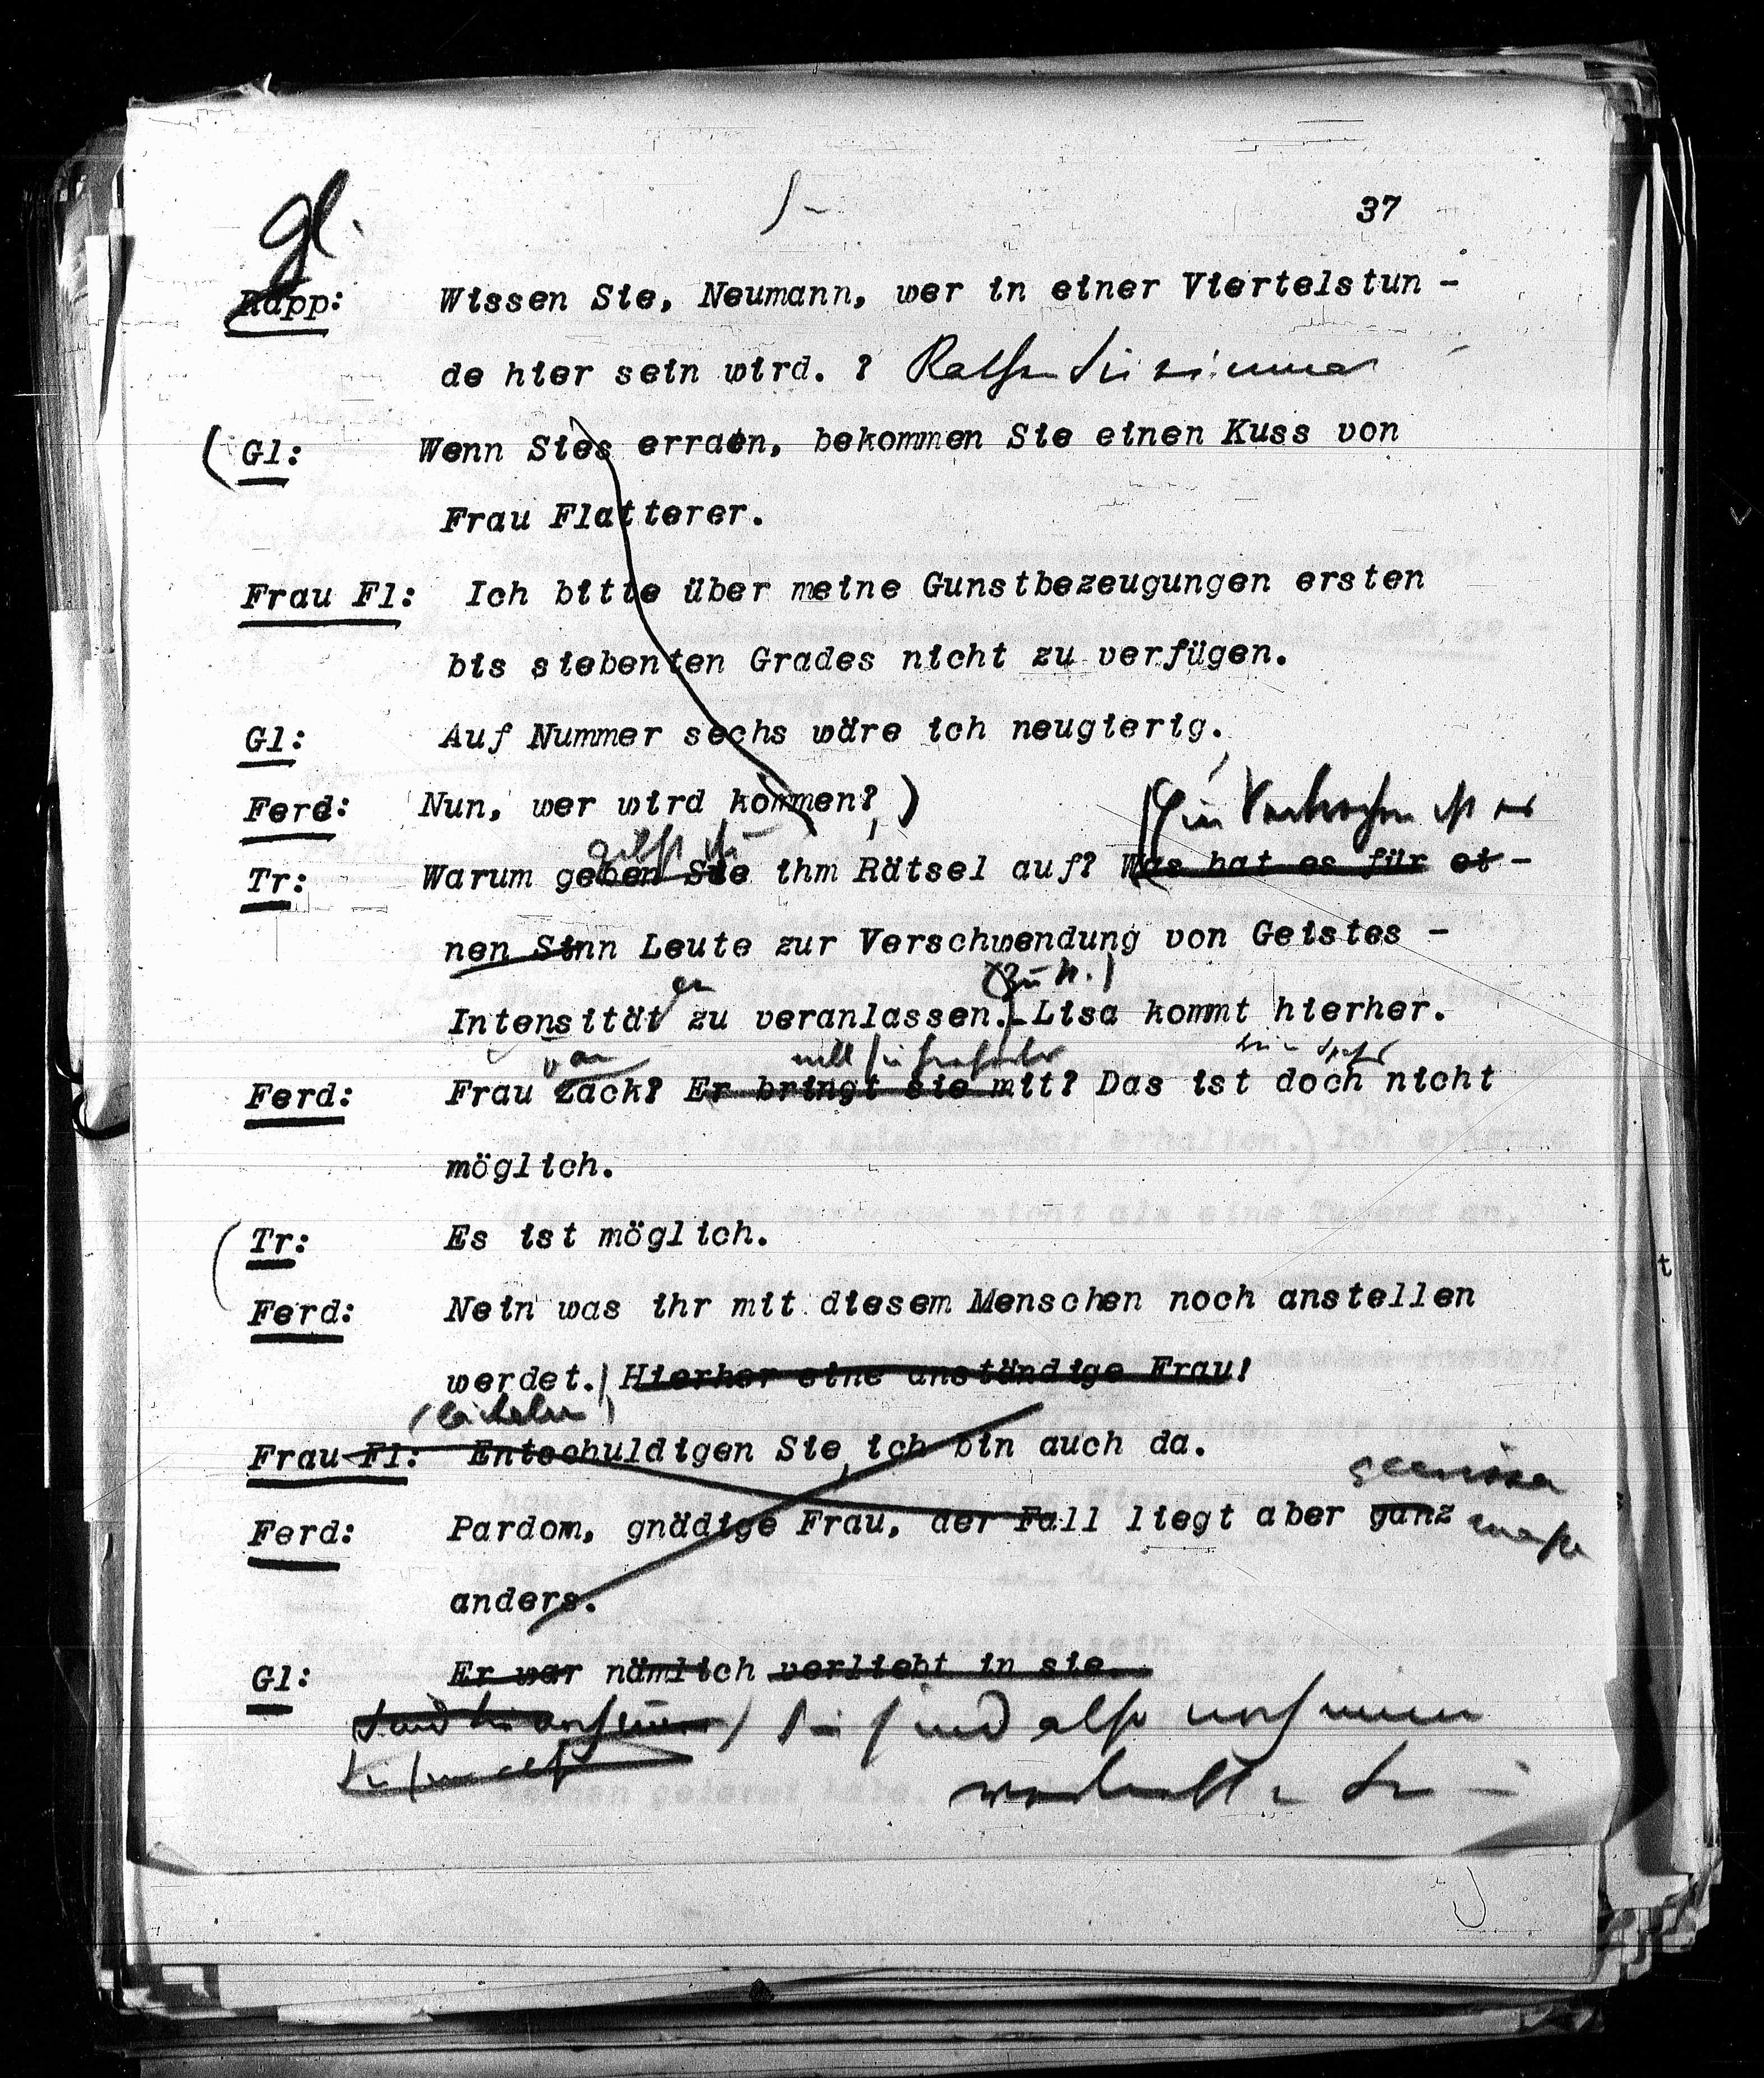 37
gl.
Rapp: Wissen Sie, Neumann, wer in einer Viertelstun -
de hier sein wird. ? Rathen Sie einmal
( Gl: Wenn Sies erraen, bekommen Sie einen Kuss von
Frau Flatterer.
Frau Fl: Ich bitte über meine Gunstbezeugungen ersten
bis siebenten Grades nicht zu verfügen.
Gl: Auf Nummer sechs wäre ich neugierig.
Ferd: Nun, wer wird kommen? )
(Ein Verbrechen ist es
gibst du
Tr: Warum geben Sie ihm Rätsel auf? Was hat es für ei -
nen Sinn Leute zur Verschwendung von Geistes -
en (Zu N.)
Intensität zu veranlassen. Lisa kommt hierher.
Ferd: Frau Zack? Er bringt sie mit? Das ist doch nicht
möglich.
( Tr: Es ist möglich.
Ferd: Nein was ihr mit diesem Menschen noch anstellen
werdet.) Hierher eine anständige Frau!
(lächelnd)
Frau Fl: Entschuldigen Sie, ich bin auch da.
gewisser
Ferd: Pardom, gnädige Frau, der Fall liegt aber ganz
anders.
Gl: Er war nämlich verliebt in sie.
Sie sind also noch immer